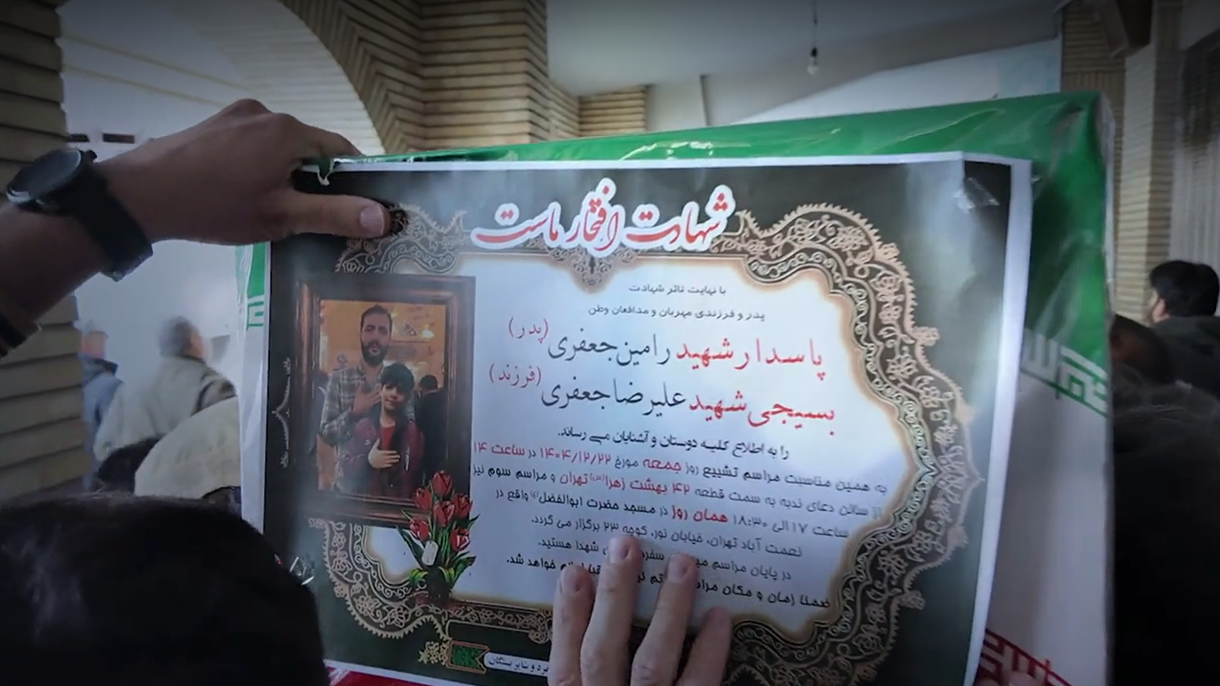 شهادت افتخار ماست
با نهایت تاثر شهادت
پدر و فرزندی مهربان و مدافعان وطن
پاسدار شهید رامین جعفری (پدر)
بسیجی شهید علیرضا جعفری (فرزند)
را به اطلاع کلیه دوستان و آشنایان می رساند.
به همین مناسبت مراسم تشییع روز جمعه مورخ ۱۴۰۴/۱۲/۲۲ در ساعت ۱۴
از سالن دعای ندبه به سمت قطعه ۴۲ بهشت زهرا(س) تهران و مراسم سوم نیز
ساعت ۱۷ الی ۱۸:۳۰ همان روز در مسجد حضرت ابوالفضل(ع) واقع در
نعمت آباد تهران، خیابان نور، کوچه ۲۳ برگزار می گردد.
در پایان مراسم شهدا هستید.
ضمنا زمان و مکان خواهد شد.